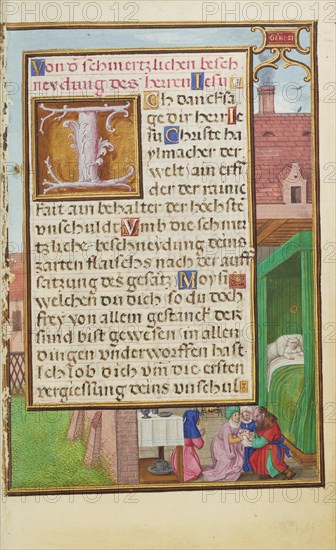 GENESI
Von d' schmertzlichen besch
neydung des herren Iesu
Ich dancksa
ge dir herr Ie
su Christe ha
ylmacher der
welt / ain erff
der der rainic
kait ain behalter der höchste
vnschuldt Vmb die schmer
tzliche beschneydung deins
zarten flaischs nach der auff
satzung des gesatz Moysi
welchen du dich / so du doch
frey von allem gestanck der
sünd bist gewesen in allen
dingen vnderworffen hast
Ich lob dich vm die ersten
vergiessung deins vnschul